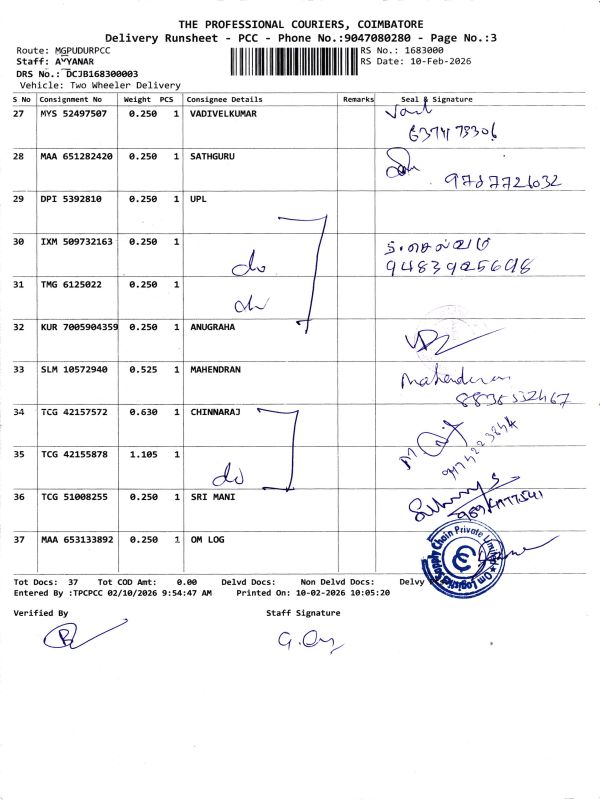 THE PROFESSIONAL COURIERS, COIMBATORE
Delivery Runsheet - PCC - Phone No.:9047080280 - Page No.:3
Route: MGPUDURPCC RS No.: 1683000
Staff: AYYANAR RS Date: 10-Feb-2026
DRS No.: DCJB168300003
Vehicle: Two Wheeler Delivery
S No Consignment No Weight PCS Consignee Details Remarks Seal & Signature
27 MYS 52497507 0.250 1 VADIVELKUMAR
28 MAA 651282420 0.250 1 SATHGURU
9787726032
29 DPI 5392810 0.250 1 UPL
30 IXM 509732163 0.250 1
do 9483925698
31 TMG 6125022 0.250 1
do
32 KUR 7005904359 0.250 1 ANUGRAHA
33 SLM 10572940 0.525 1 MAHENDRAN Mahendran
34 TCG 42157572 0.630 1 CHINNARAJ
35 TCG 42155878 1.105 1
do
36 TCG 51008255 0.250 1 SRI MANI
37 MAA 653133892 0.250 1 OM LOG
Om Logistics Supply Chain Private Limited
Tot Docs: 37 Tot COD Amt: 0.00 Delvd Docs: Non Delvd Docs: Delvy
Entered By :TPCPCC 02/10/2026 9:54:47 AM Printed On: 10-02-2026 10:05:20
Verified By Staff Signature